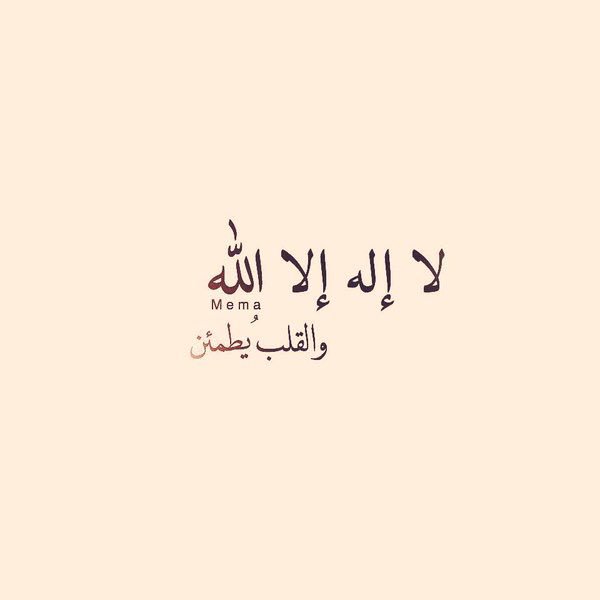 لا إله إلا الله
Mema
والقلب يُطمئن